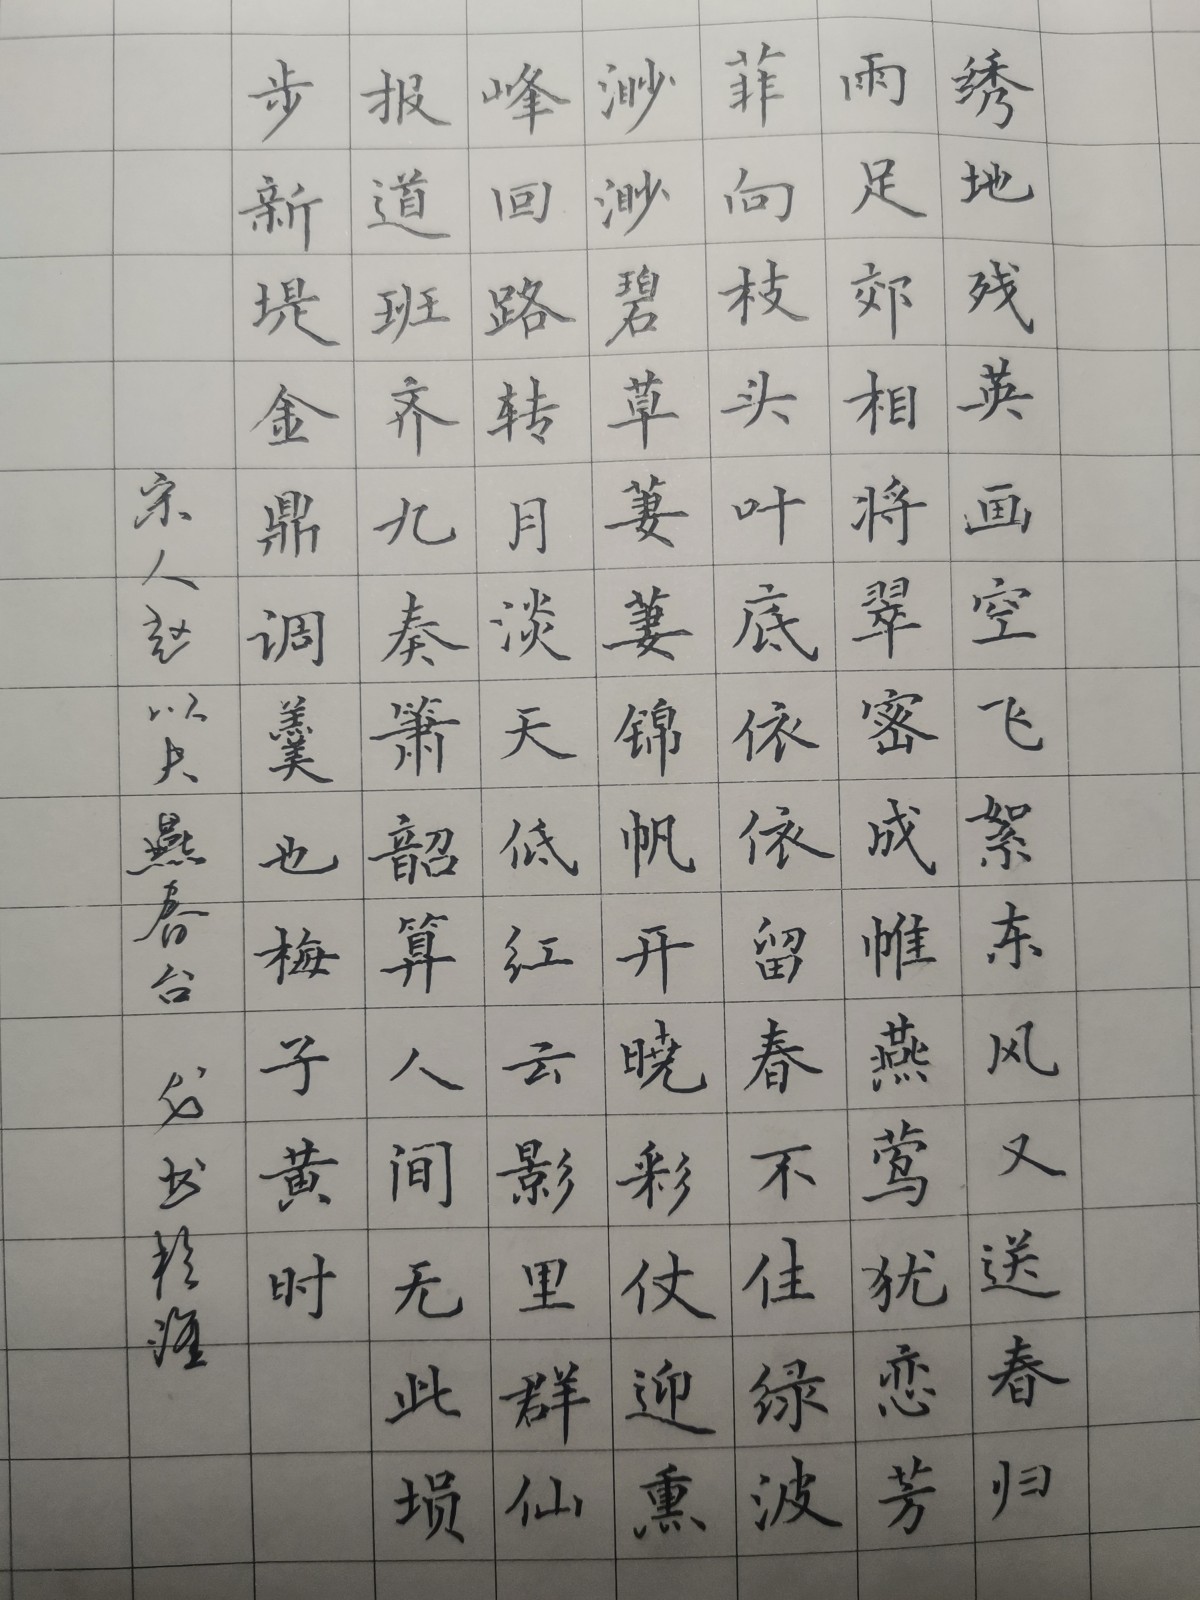 绣地残英画空飞絮东风又送春归
雨足郊相将翠密成帷燕莺犹恋芳
菲向枝头叶底依依留春不住绿波
渺渺碧草萋萋锦帆开晓彩仗迎熏
峰回路转月淡天低红云影里群仙
报道班齐九奏箫韶算人间无此埙
步新堤金鼎调羹也梅子黄时
宋人赵以夫燕春台